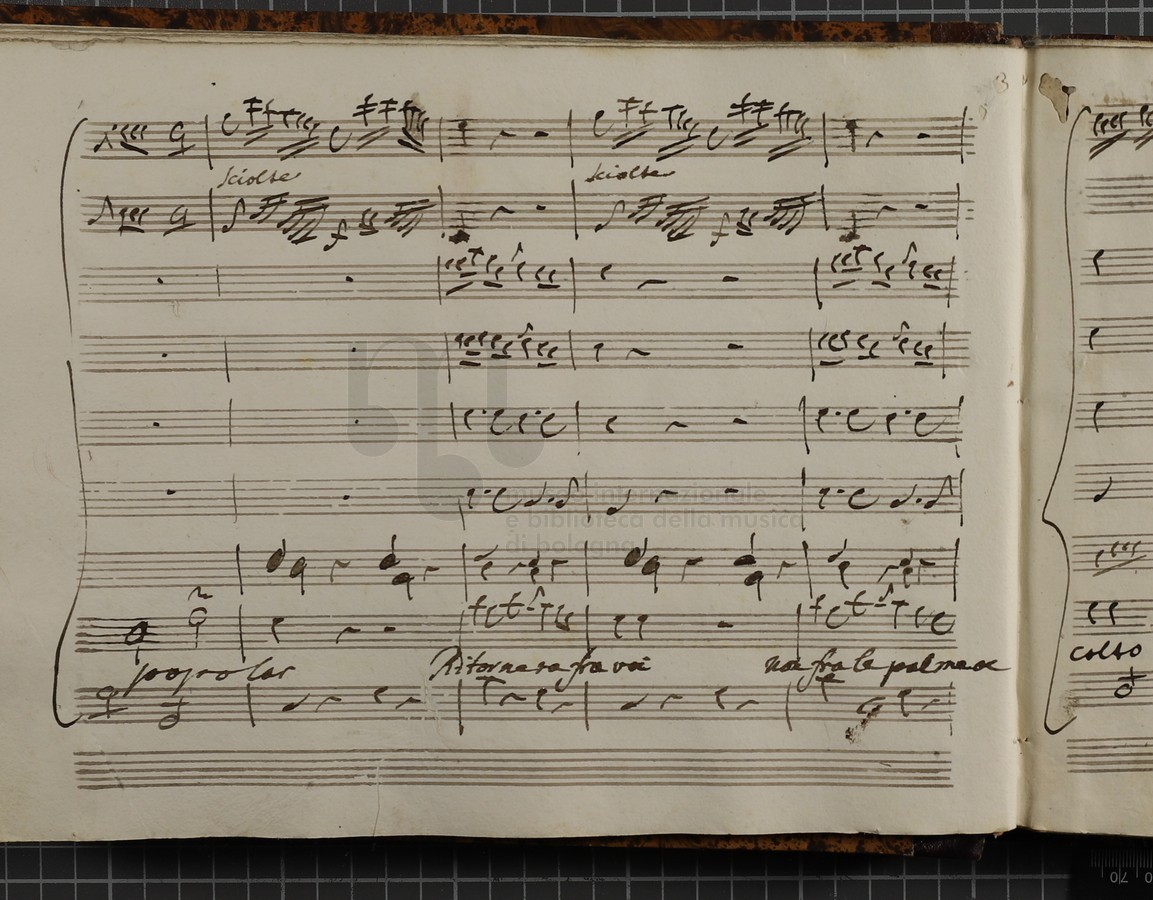 3
sciolte sciolte
museo internazionale
e biblioteca della musica
di bologna
Ritornerà fra voi non fra le palme ac
colto
70